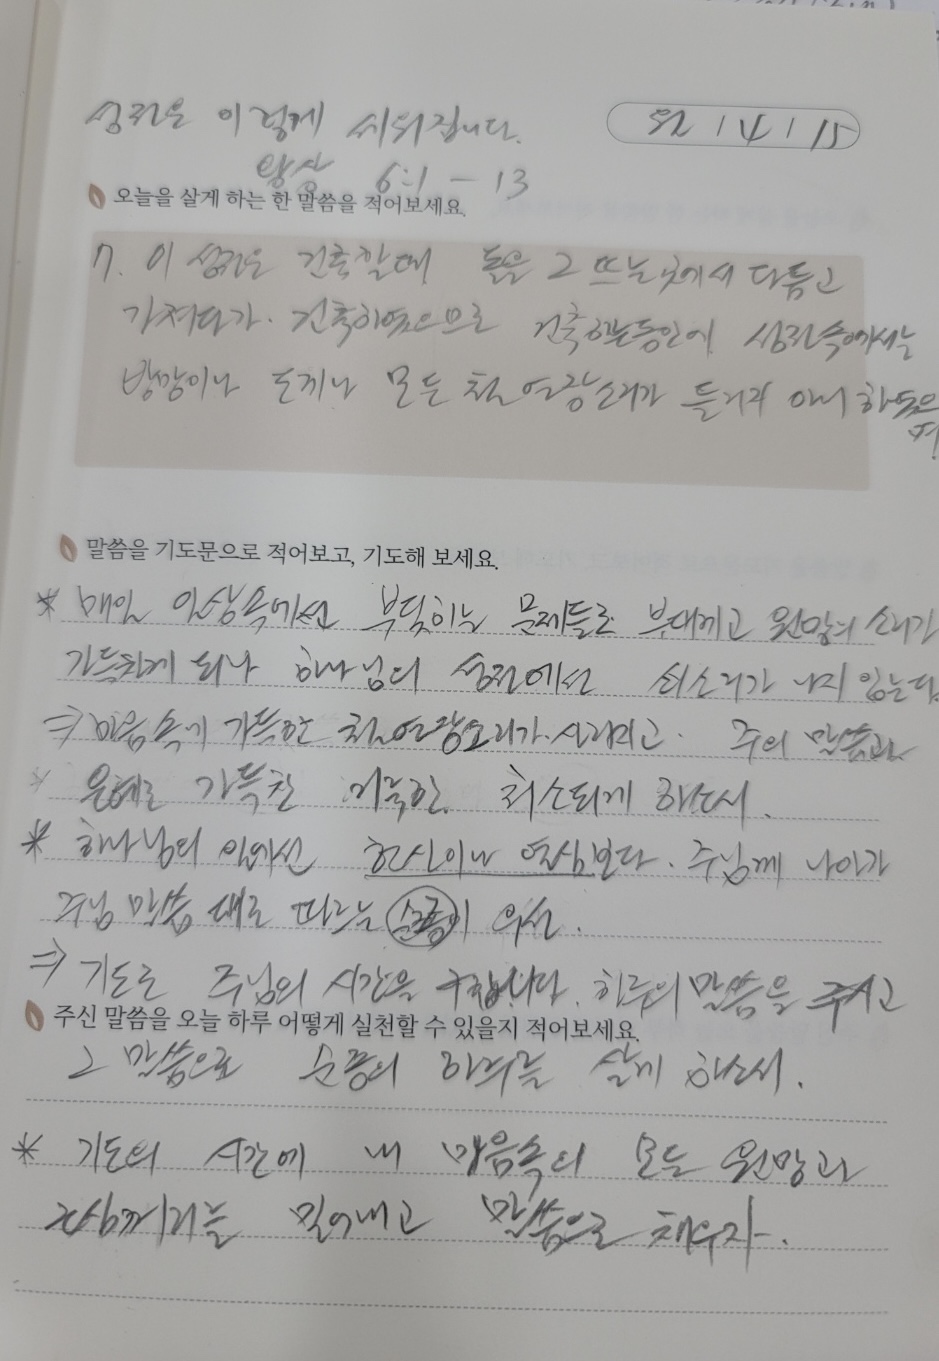 성전은 이렇게 세워집니다.
월 / 4 / 15
왕상 6:1 - 13
오늘을 살게 하는 한 말씀을 적어보세요.
7. 이 성전은 건축할 때 돌을 그 뜨는 곳에서 다듬고
가져다가. 건축하였으므로 건축하는 동안에 성전 속에서는
방망이나 도끼나 모든 철 연장 소리가 들리지 아니 하였으
며!
말씀을 기도문으로 적어보고, 기도해 보세요.
* 매일 일상속에선 부딪히는 문제들로 부대끼고 원망의 소리가
가득차게 되나 하나님의 성전에선 쇠소리가 나지 않는다
⇒ 마음 속에 가득한 철 연장소리가 사라지고. 주의 말씀과
* 은혜로 가득찬 거룩한 처소되게 하소서.
* 하나님의 일에선 헌신이나 열심보다. 주님께 나아가
주님 말씀 대로 따르는 순종이 우선.
⇒ 기도로 주님의 시간을 구합니다. 하루의 말씀을 주시고
주신 말씀을 오늘 하루 어떻게 실천할 수 있을지 적어보세요.
그 말씀으로 순종의 하루를 살게 하소서.
* 기도의 시간에 내 마음속의 모든 원망과
근심거리를 밀어내고 말씀으로 채우자.